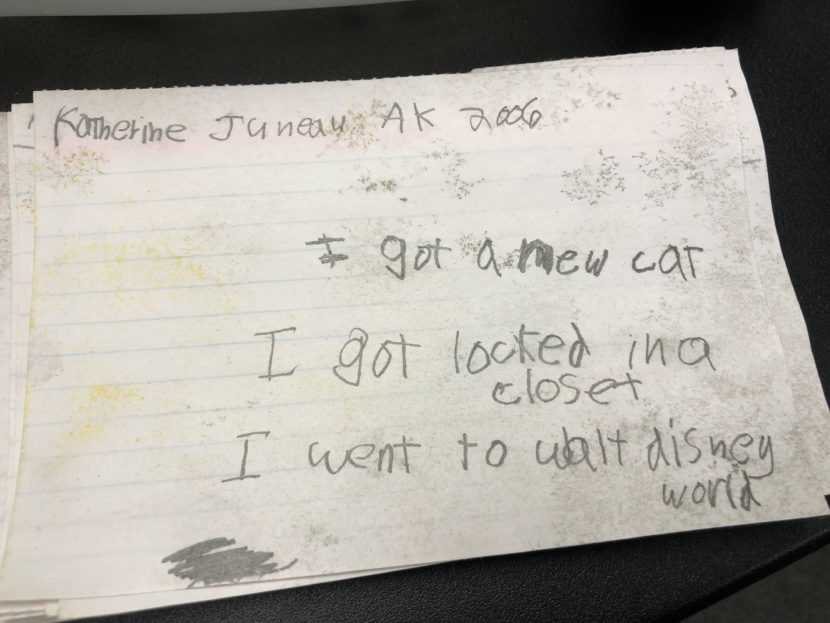 Katherine Juneau AK 2006
I got a new car
I got locked in a
closet
I went to walt disney
world